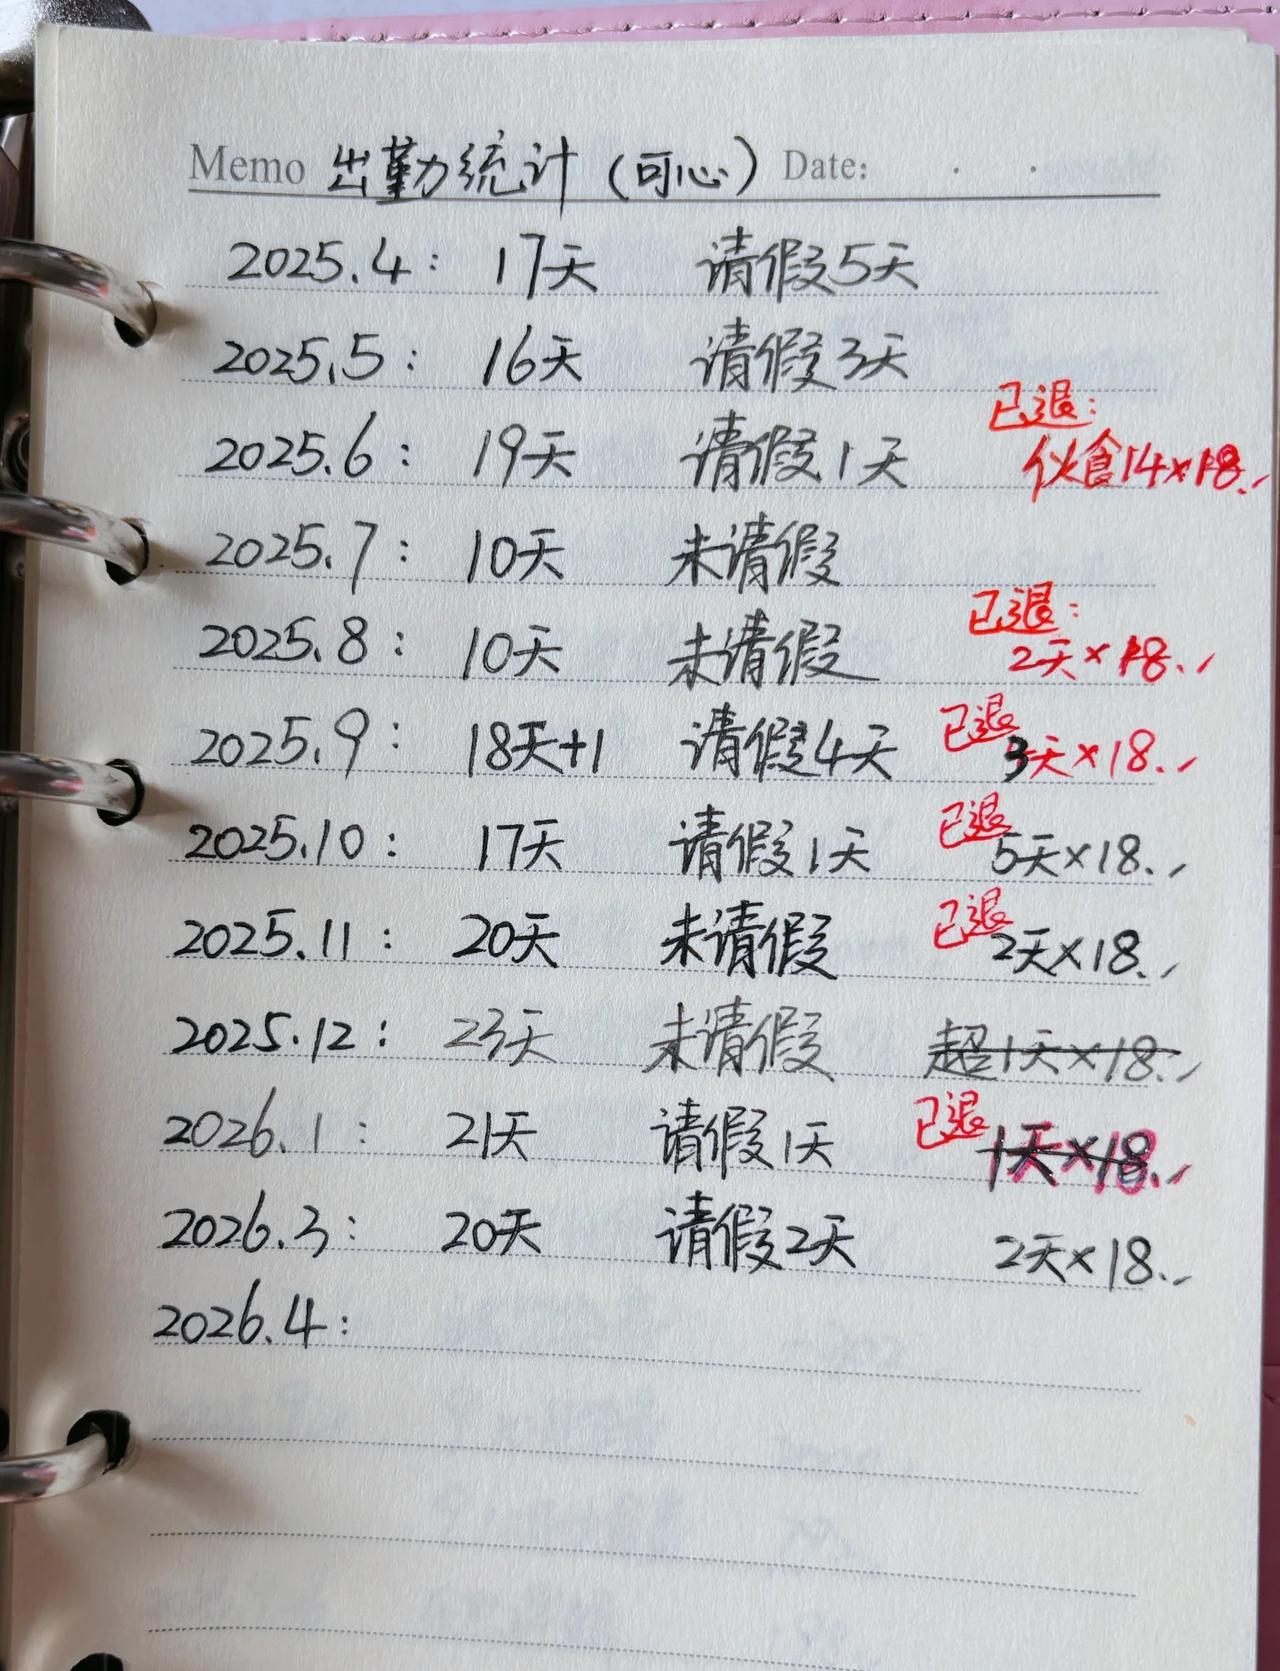 Memo 出勤统计（可心） Date:
2025.4: 17天 请假5天
2025.5: 16天 请假3天
已退:
2025.6: 19天 请假1天 伙食14×18.
2025.7: 10天 未请假
已退:
2025.8: 10天 未请假 2天×18.
2025.9: 18天+1 请假4天 已退 3天×18.
2025.10: 17天 请假1天 已退 5天×18.
2025.11: 20天 未请假 已退 2天×18.
2025.12: 23天 未请假 超1天×18.
2026.1: 21天 请假1天 已退 1天×18.
2026.3: 20天 请假2天 2天×18.
2026.4: